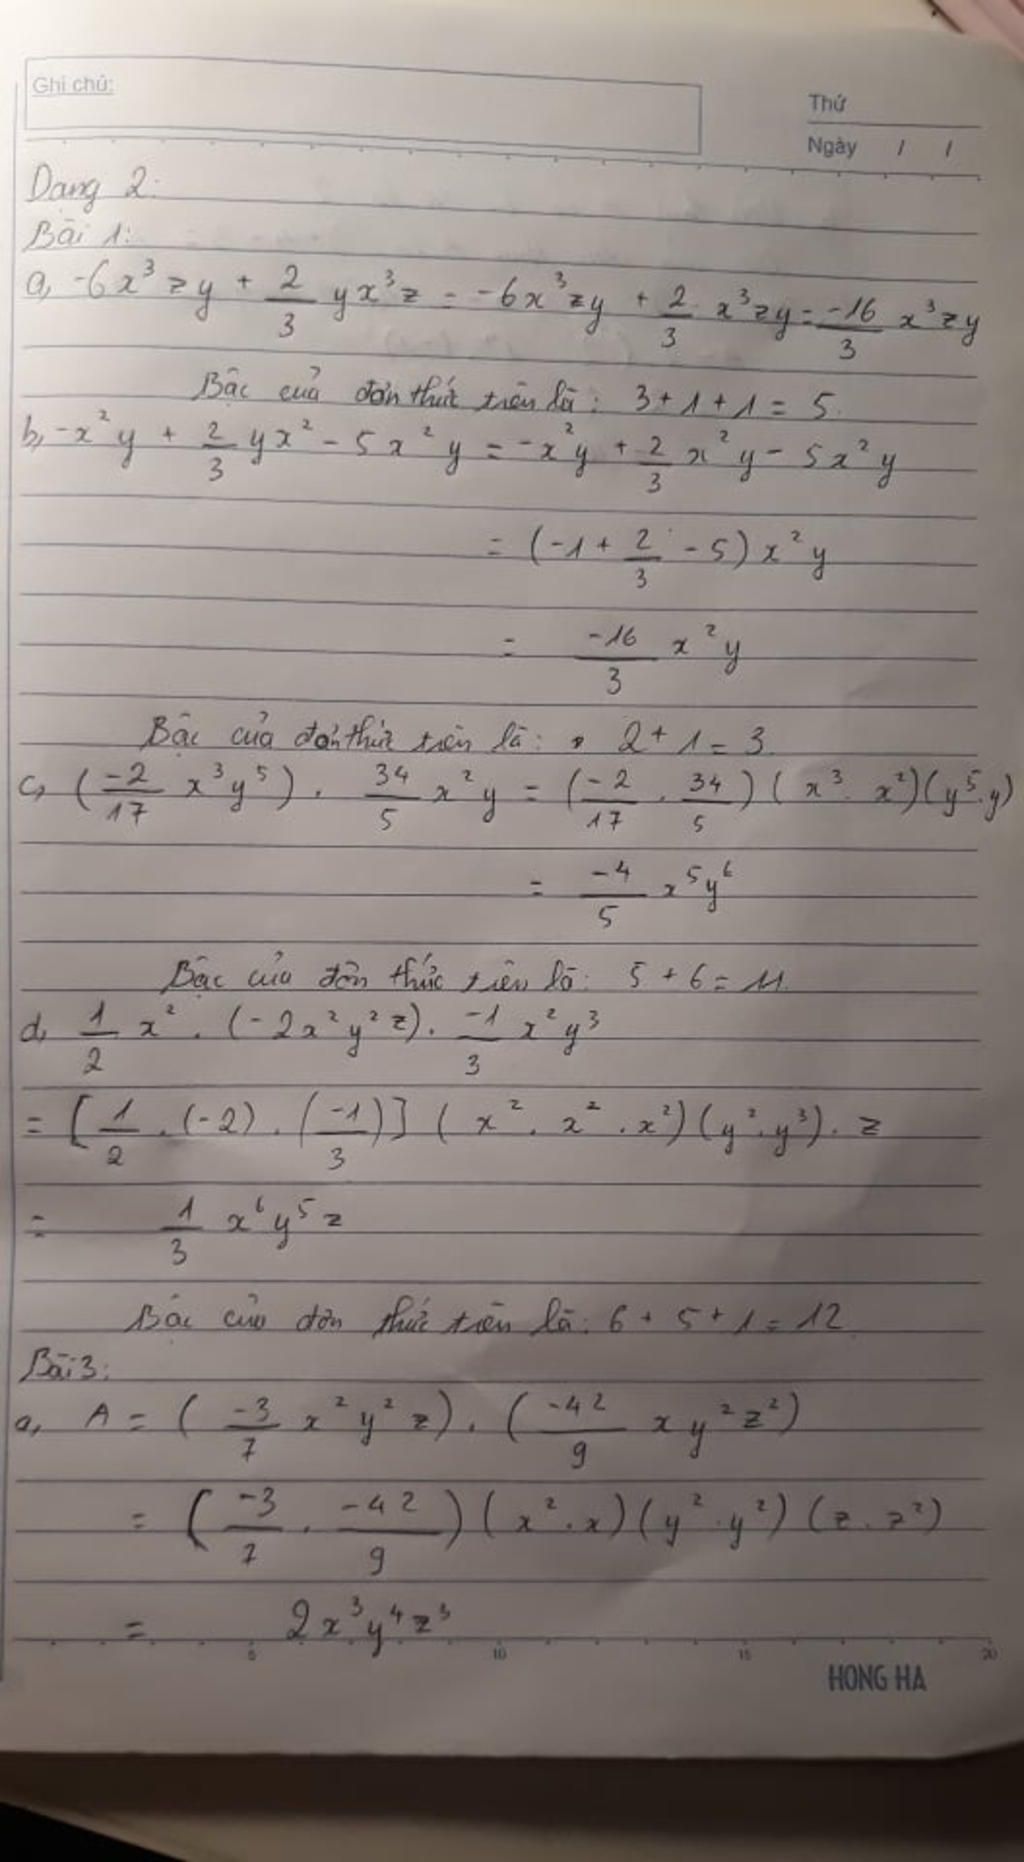 Ghi chú:
Thứ
Ngày / /
Dạng 2:
Bài 1:
a, -6x³zy + 2/3 yx³z = -6x³zy + 2/3 x³zy = -16/3 x³zy
Bậc của đơn thức trên là: 3+1+1 = 5.
b, -x²y + 2/3 yx² - 5x²y = -x²y + 2/3 x²y - 5x²y
= (-1 + 2/3 - 5) x²y
= -16/3 x²y
Bậc của đơn thức trên là: 2+1 = 3.
c, (-2/17 x³y⁵) . 34/5 x²y = (-2/17 . 34/5) (x³. x²)(y⁵.y)
= -4/5 x⁵y⁶
Bậc của đơn thức trên là: 5+6 = 11.
d, 1/2 x² . (-2x²y²z). -1/3 x²y³
= [1/2 . (-2) . (-1/3)] (x² . x² . x²)(y².y³). z
= 1/3 x⁶y⁵z
Bậc của đơn thức trên là: 6+5+1 = 12.
Bài 3:
a, A = (-3/7 x²y²z) . (-42/9 xy²z²)
= (-3/7 . -42/9) (x².x)(y².y²)(z.z²)
= 2x³y⁴z³
5 10 15 20
HONG HA